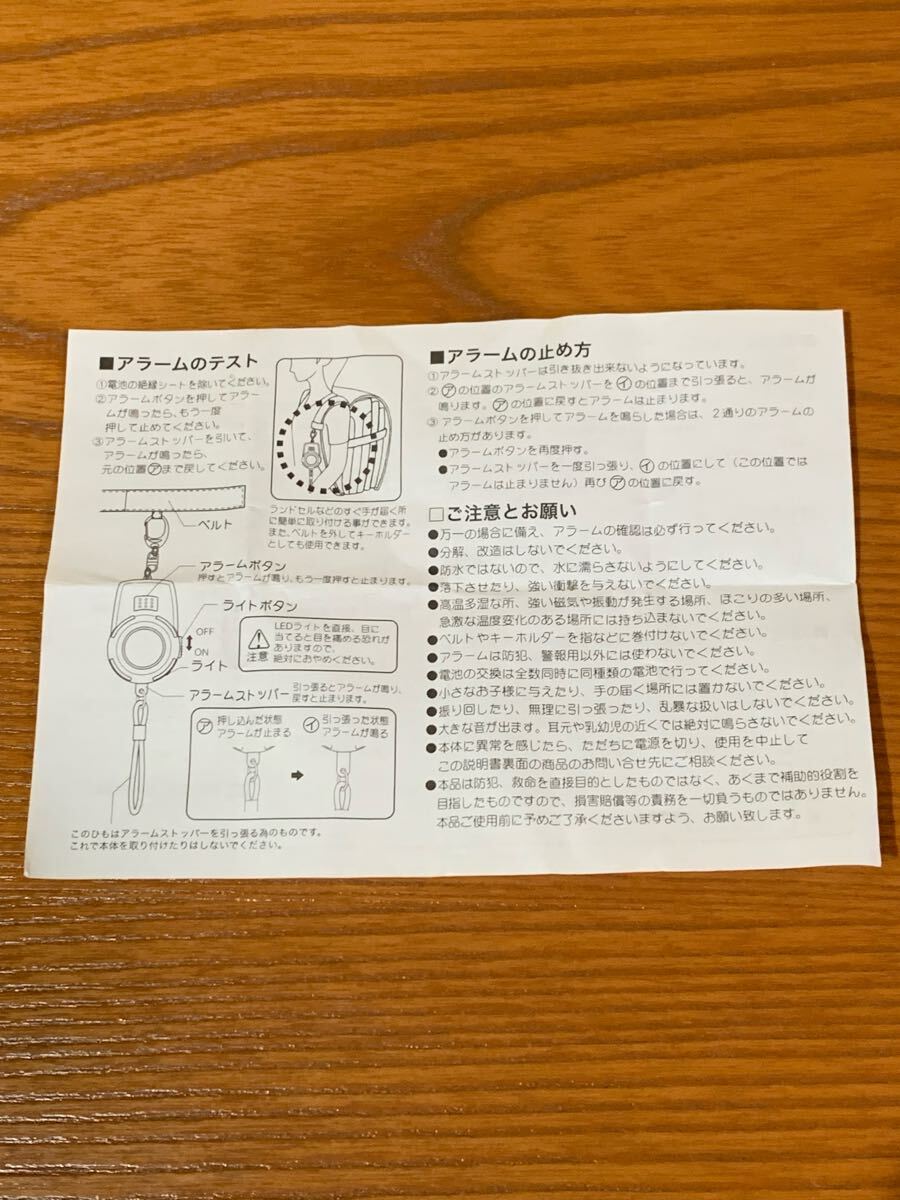 ■アラームのテスト
①電池の絶縁シートを除いてください。
②アラームボタンを押してアラー
ムが鳴ったら、もう一度
押して止めてください。
③アラームストッパーを引いて、
アラームが鳴ったら、
元の位置㋐まで戻してください。
ランドセルなどのすぐ手が届く所
に簡単に取り付ける事ができます。
また、ベルトを外してキーホルダー
としても使用できます。
ベルト
アラームボタン
押すとアラームが鳴り、もう一度押すと止まります。
ライトボタン
OFF
ON
ライト
注意
LEDライトを直接、目に
当てると目を痛める恐れが
ありますので、
絶対におやめください。
アラームストッパー
引っ張るとアラームが鳴り、
戻すと止まります。
㋐ 押し込んだ状態
アラームが止まる
㋑ 引っ張った状態
アラームが鳴る
このひもはアラームストッパーを引っ張る為のものです。
これで本体を取り付けたりはしないでください。
■アラームの止め方
①アラームストッパーは引き抜き出来ないようになっています。
②㋐の位置のアラームストッパーを㋑の位置まで引っ張ると、アラームが
鳴ります。㋐の位置に戻すとアラームは止まります。
③アラームボタンを押してアラームを鳴らした場合は、2通りのアラームの
止め方があります。
●アラームボタンを再度押す。
●アラームストッパーを一度引っ張り、㋑の位置にして(この位置では
アラームは止まりません)再び㋐の位置に戻す。
□ご注意とお願い
●万一の場合に備え、アラームの確認は必ず行ってください。
●分解、改造はしないでください。
●防水ではないので、水に濡らさないようにしてください。
●落下させたり、強い衝撃を与えないでください。
●高温多湿な所、強い磁気や振動が発生する場所、ほこりの多い場所、
急激な温度変化のある場所には持ち込まないでください。
●ベルトやキーホルダーを指などに巻付けないでください。
●アラームは防犯、警報用以外には使わないでください。
●電池の交換は全数同時に同種類の電池で行ってください。
●小さなお子様に与えたり、手の届く場所には置かないでください。
●振り回したり、無理に引っ張ったり、乱暴な扱いはしないでください。
●大きな音が出ます。耳元や乳幼児の近くでは絶対に鳴らさないでください。
●本体に異常を感じたら、ただちに電源を切り、使用を中止して
この説明書裏面の商品のお問い合せ先にご相談ください。
●本品は防犯、救命を直接目的としたものではなく、あくまで補助的役割を
目指したものですので、損害賠償等の責務を一切負うものではありません。
本品ご使用前に予めご了承くださいますよう、お願い致します。